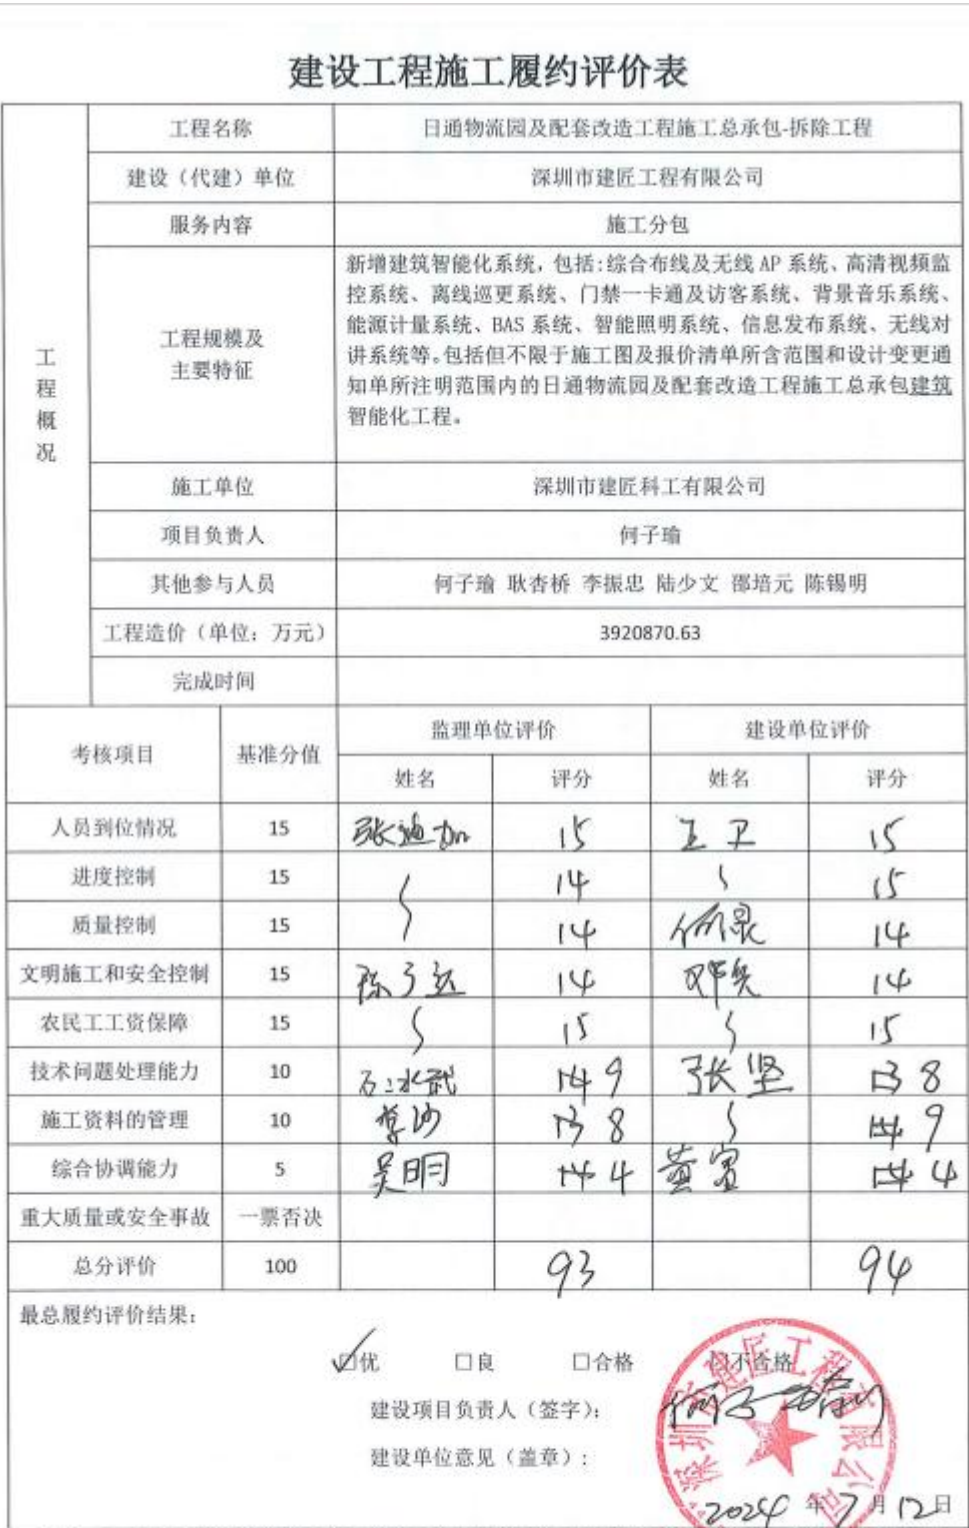 建设工程施工履约评价表
工程概况
工程名称 日通物流园及配套改造工程施工总承包-拆除工程
建设（代建）单位 深圳市建匠工程有限公司
服务内容 施工分包
工程规模及
主要特征
新增建筑智能化系统，包括:综合布线及无线 AP 系统、高清视频监
控系统、离线巡更系统、门禁一卡通及访客系统、背景音乐系统、
能源计量系统、BAS 系统、智能照明系统、信息发布系统、无线对
讲系统等。包括但不限于施工图及报价清单所含范围和设计变更通
知单所注明范围内的日通物流园及配套改造工程施工总承包建筑
智能化工程。
施工单位 深圳市建匠科工有限公司
项目负责人 何子瑜
其他参与人员 何子瑜 耿杏桥 李振忠 陆少文 邵培元 陈锡明
工程造价（单位：万元） 3920870.63
完成时间
考核项目 基准分值 监理单位评价 建设单位评价
姓名 评分 姓名 评分
人员到位情况 15 张迪加 15 王卫 15
进度控制 15 14 15
质量控制 15 14 14
文明施工和安全控制 15 14 14
农民工工资保障 15 15 15
技术问题处理能力 10 9 张坚 8
施工资料的管理 10 8 9
综合协调能力 5 吴明 4 4
重大质量或安全事故 一票否决
总分评价 100 93 94
最总履约评价结果：
☑优 □良 □合格 □不合格
建设项目负责人（签字）：
建设单位意见（盖章）:
深圳市建匠工程有限公司
2024 年 7 月 12 日